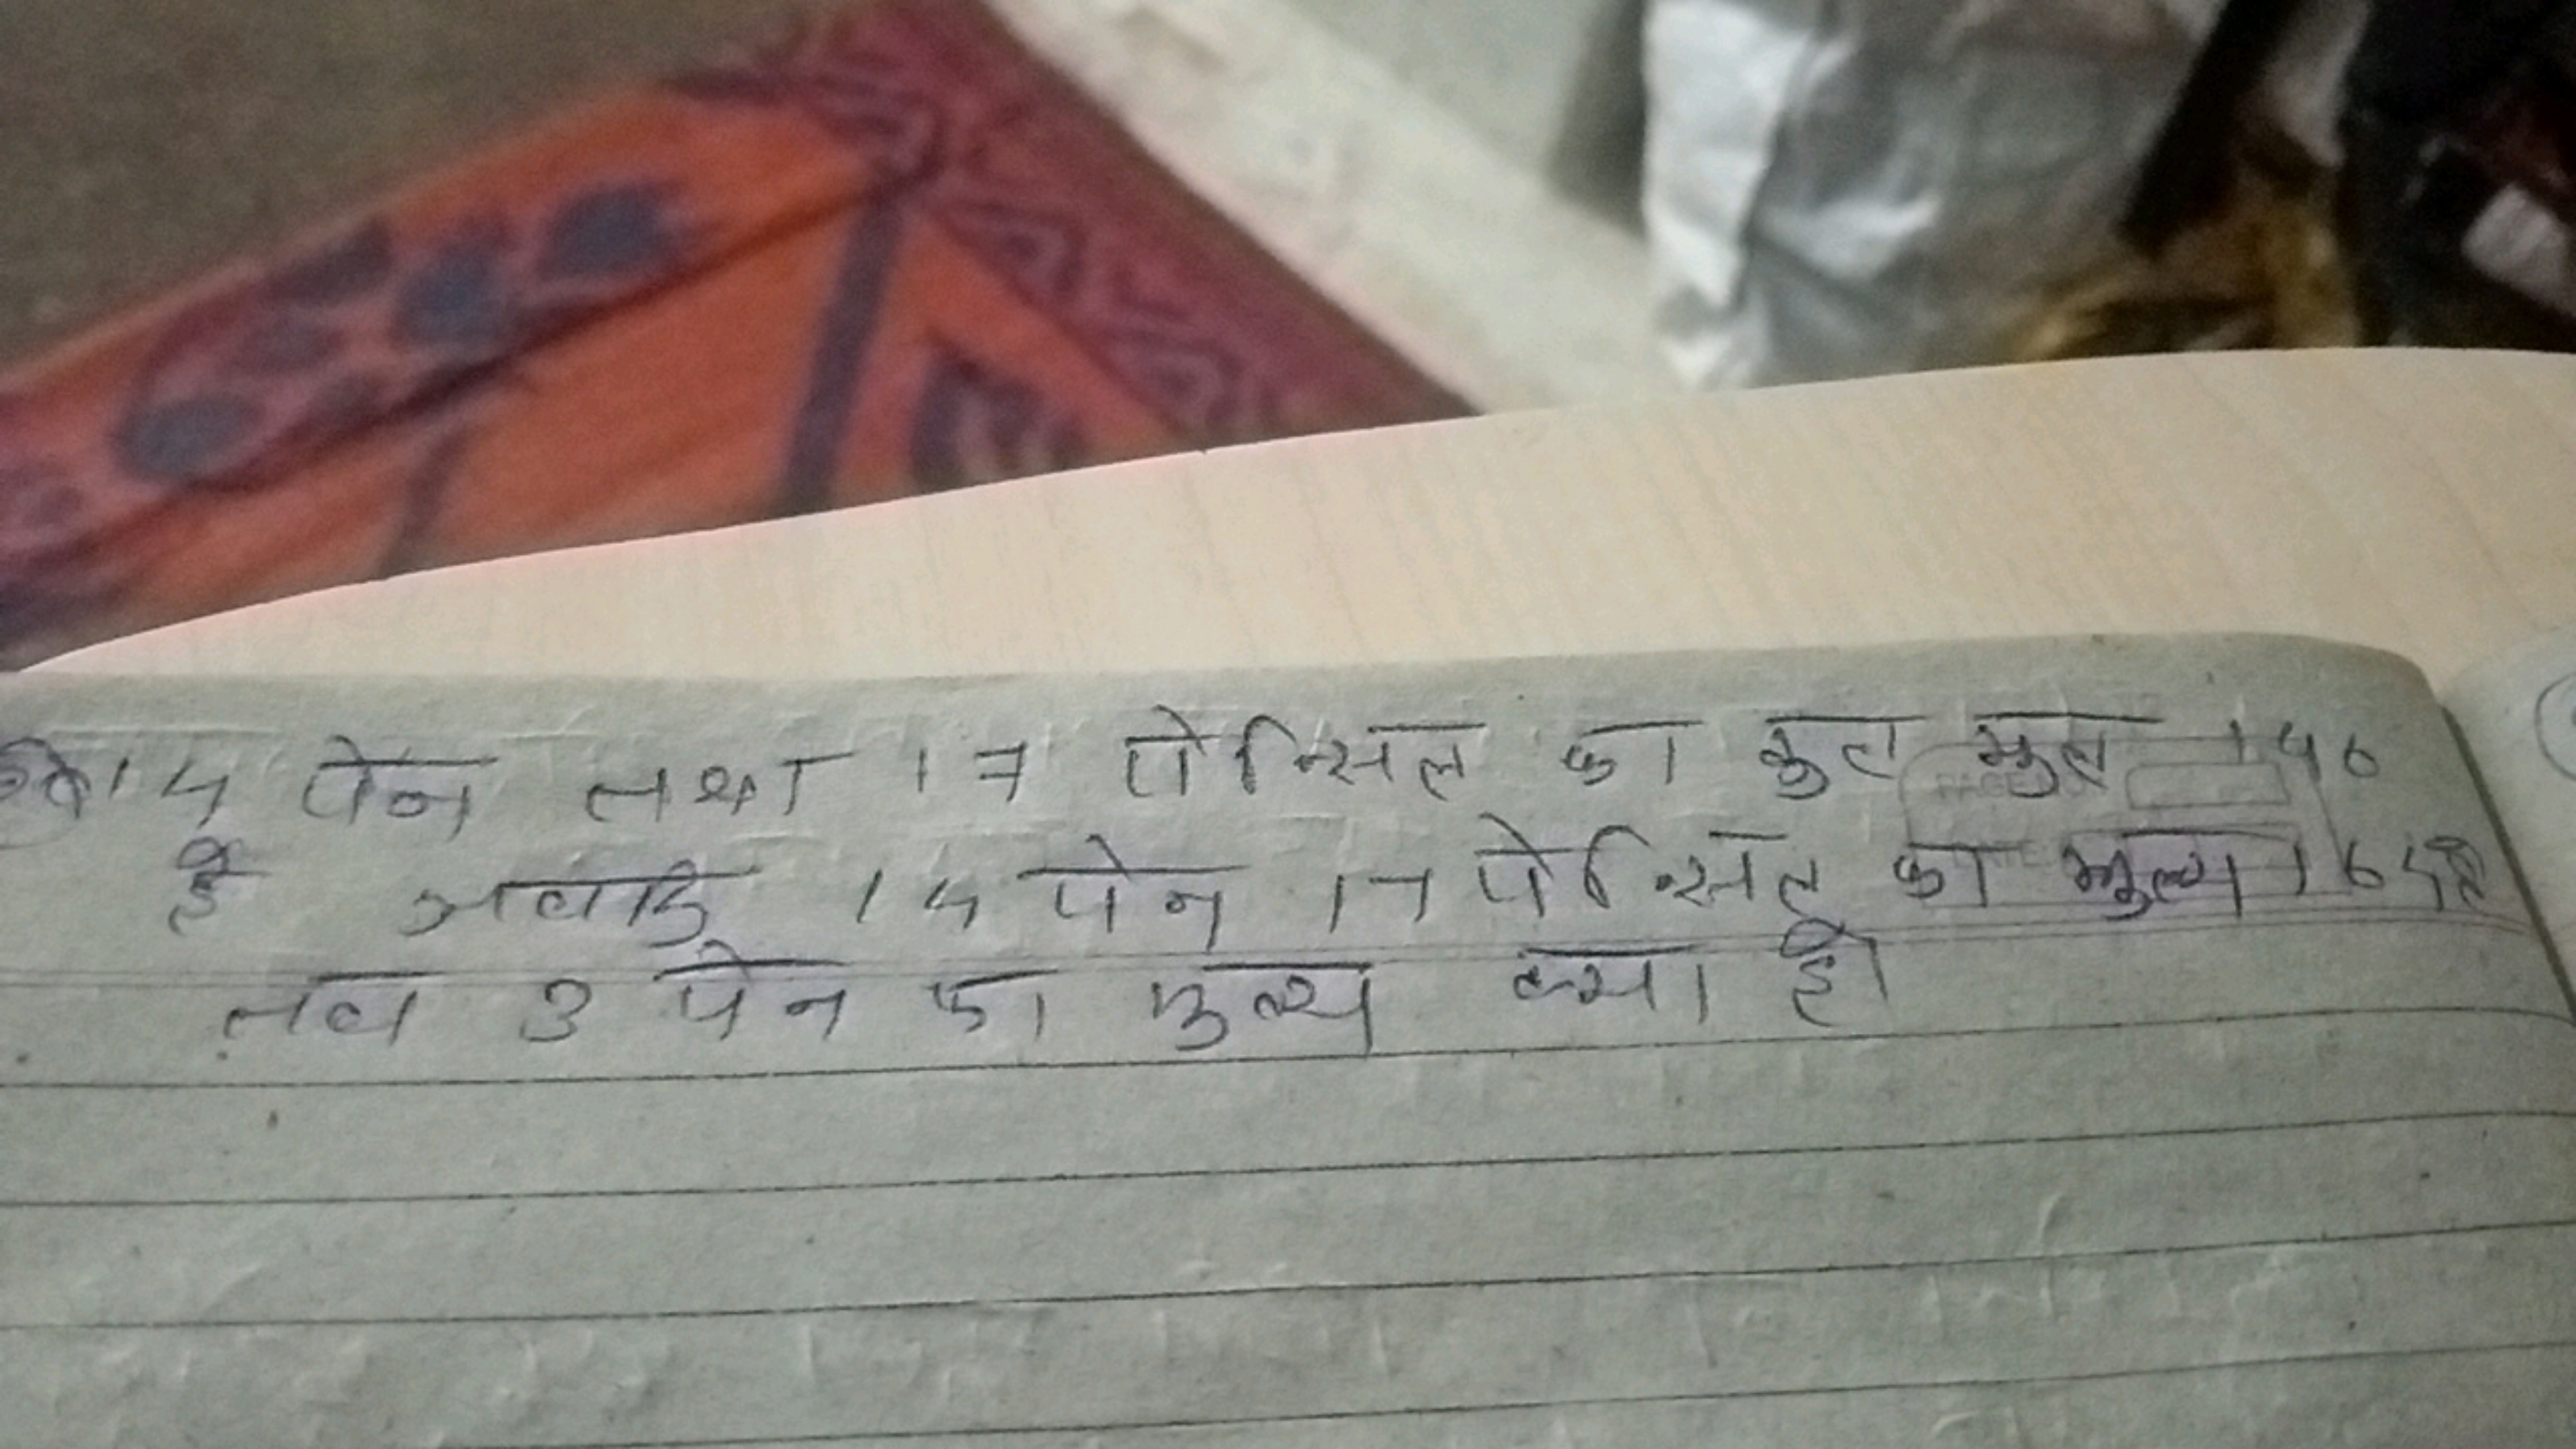 14 पेन तथा 17 पेन्सिल का कुल मुल 146
है जबकि 14 पेन 17 पेन्सिल का मुल्य 165 है
तब 3 पेन का मुल्य क्या है।